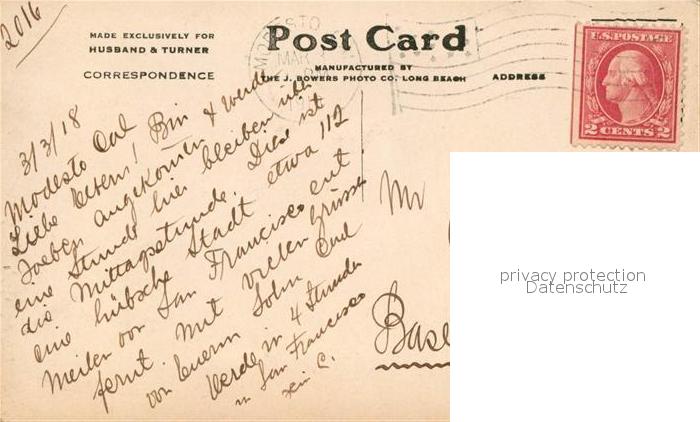 2016
MADE EXCLUSIVELY FOR
HUSBAND & TURNER
CORRESPONDENCE
Post Card
MANUFACTURED BY
THE J. BOWERS PHOTO CO. LONG BEACH
ADDRESS
MODESTO
MAR
U.S. POSTAGE
2 CENTS 2
3/3/18
Modesto Cal
Liebe Eltern! Bin
soeben angekommen & werde
eine Stunde hier bleiben über
die Mittagsstunde. Dies ist
eine hübsche Stadt etwa 112
Meilen von San Francisco ent
fernt. Mit vielen Grüssen
von Euerm Sohn Carl
Werde in 4 Stunden
in San Francisco
sein C.
Mr
Base
privacy protection
Datenschutz